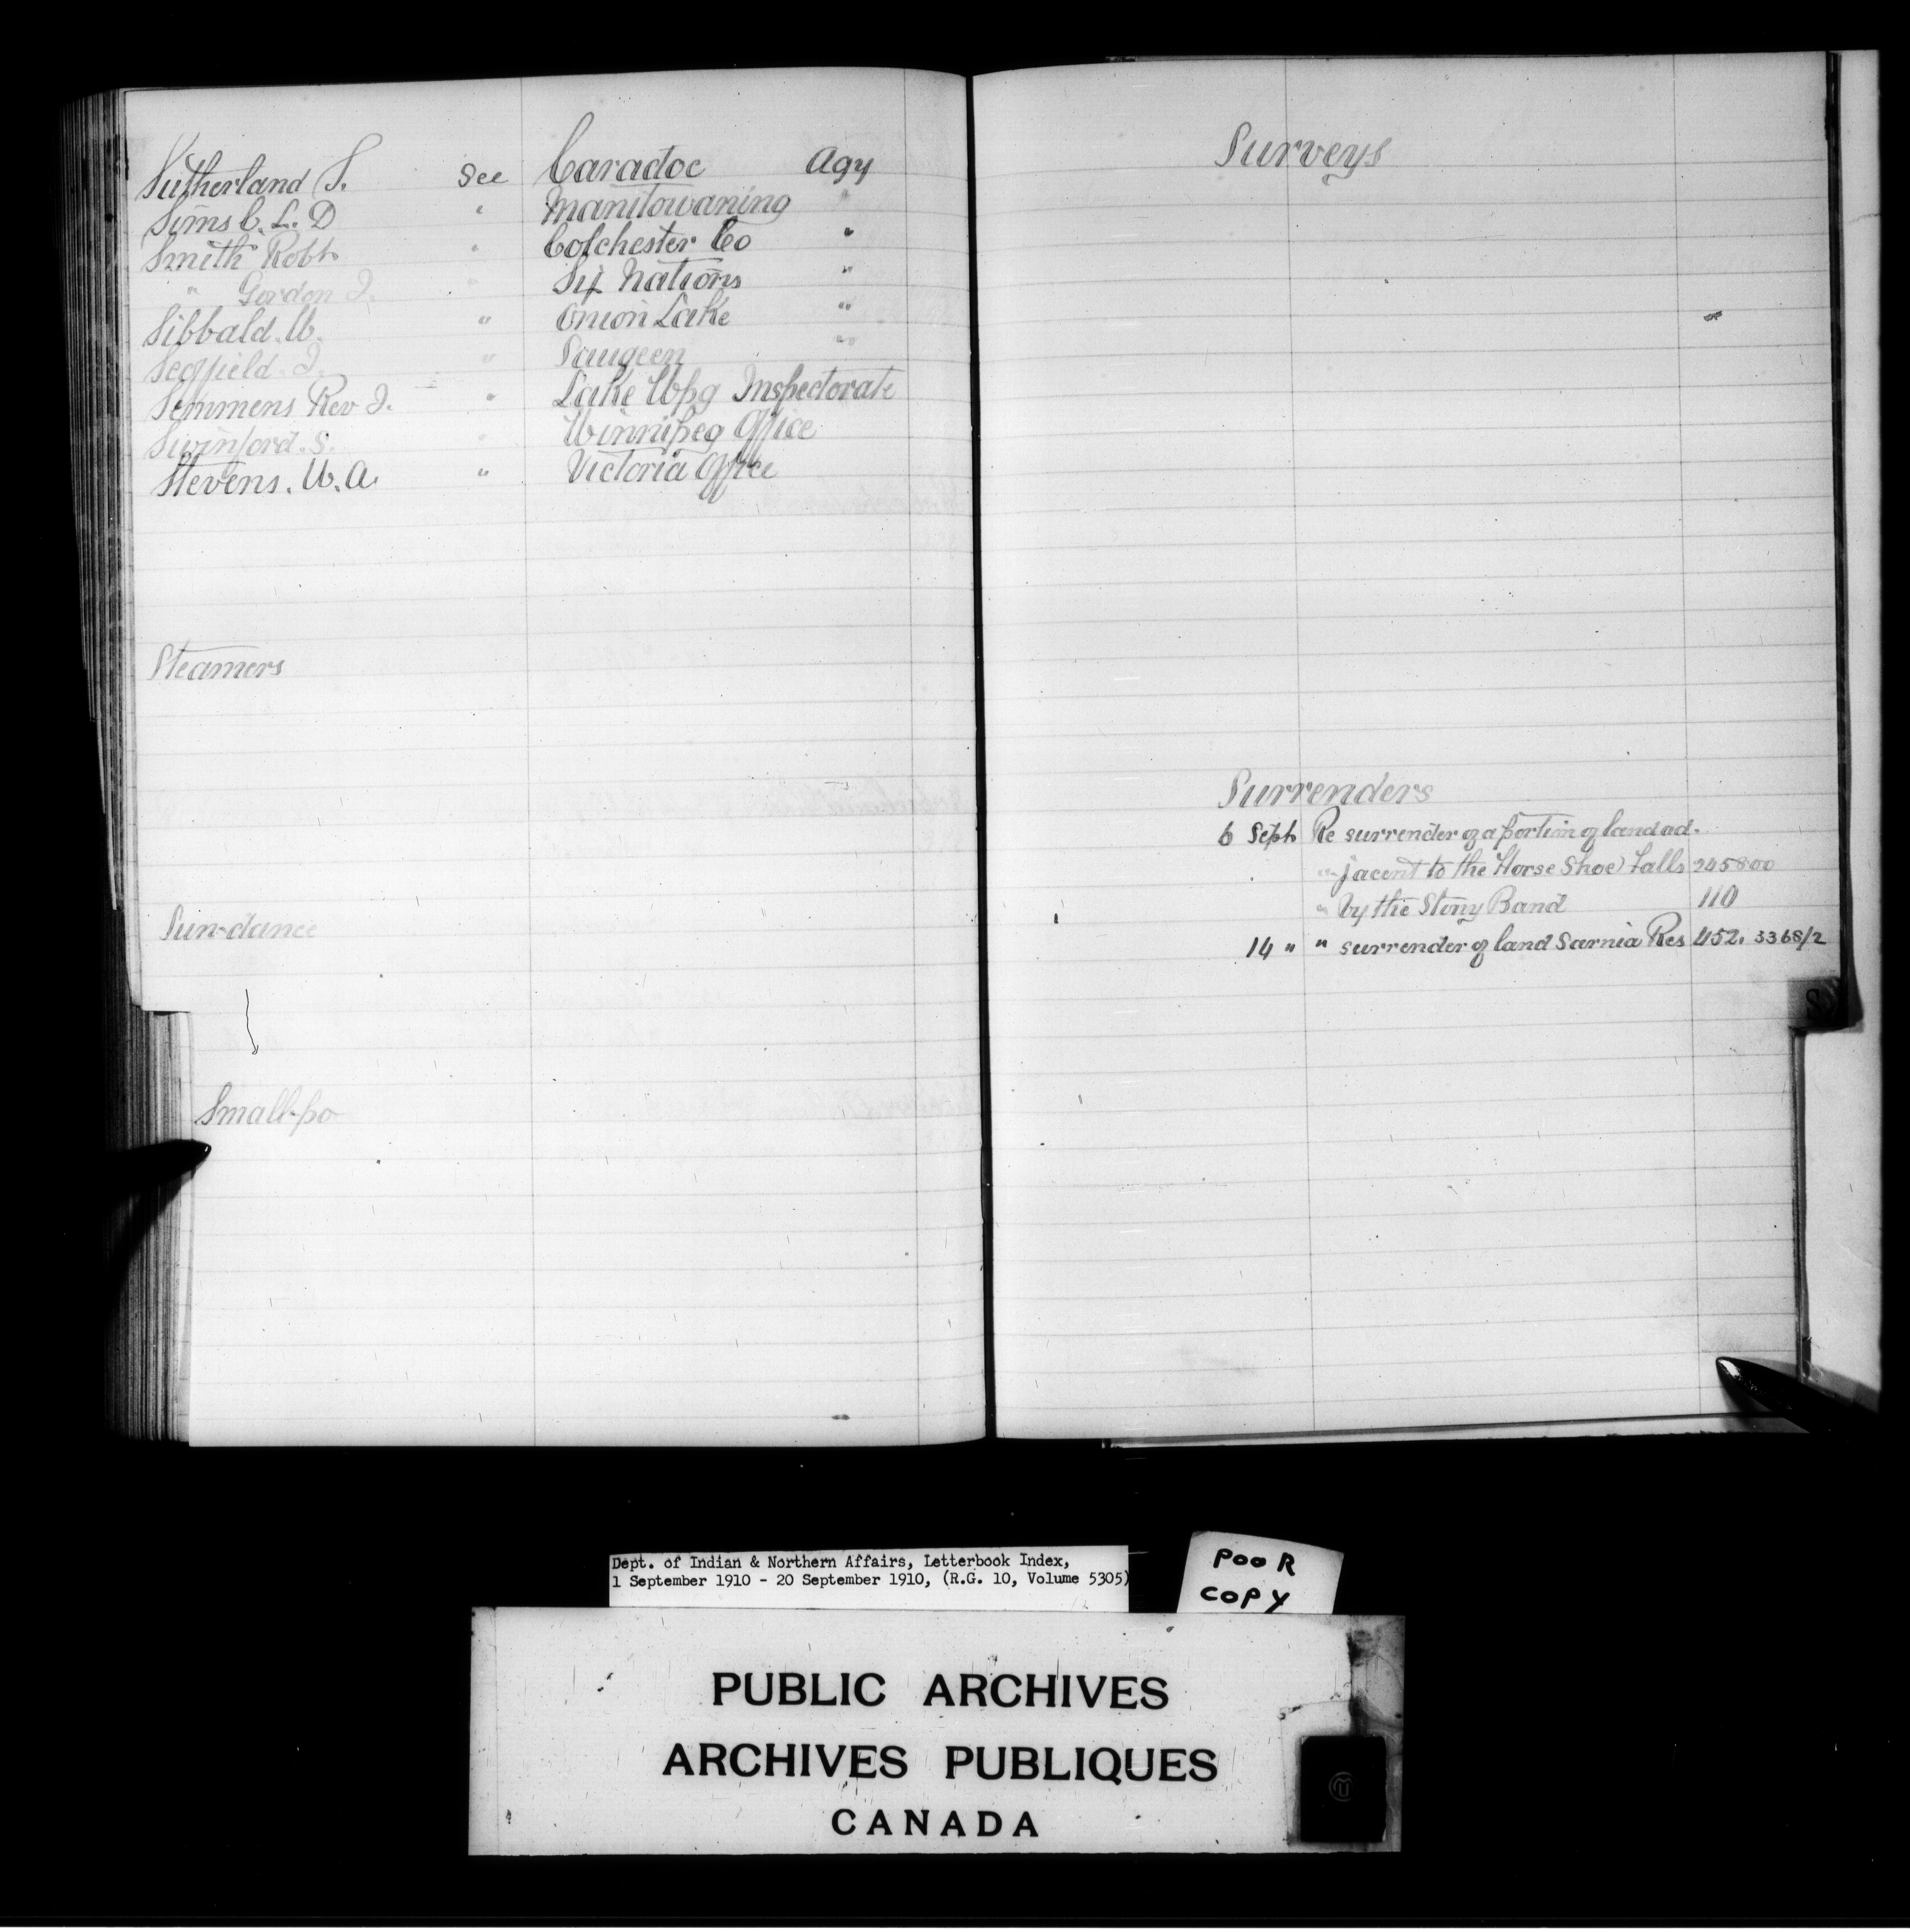 Sutherland S. See Caradoc Agy
Sims C. L. D " Manitowaning "
Smith Robt " Colchester Co "
" Gordon J. " Six Nations "
Sibbald. W. " Onion Lake "
Scoffield. J. " Saugeen "
Semmens Rev J. " Lake Wpg Inspectorate
Swinford. S. " Winnipeg Office
Stevens. W. A. " Victoria Office
Steamers
Sun-dance
Small-po
Surveys
Surrenders
6 Sept Re surrender of a portion of land ad-
" jacent to the Horse Shoe Falls 245800
" by the Stony Band 110
14 " " surrender of land Sarnia Res 452. 3368/2
S
Dept. of Indian & Northern Affairs, Letterbook Index,
1 September 1910 - 20 September 1910, (R.G. 10, Volume 5305)
POOR
COPY
PUBLIC ARCHIVES
ARCHIVES PUBLIQUES
CANADA